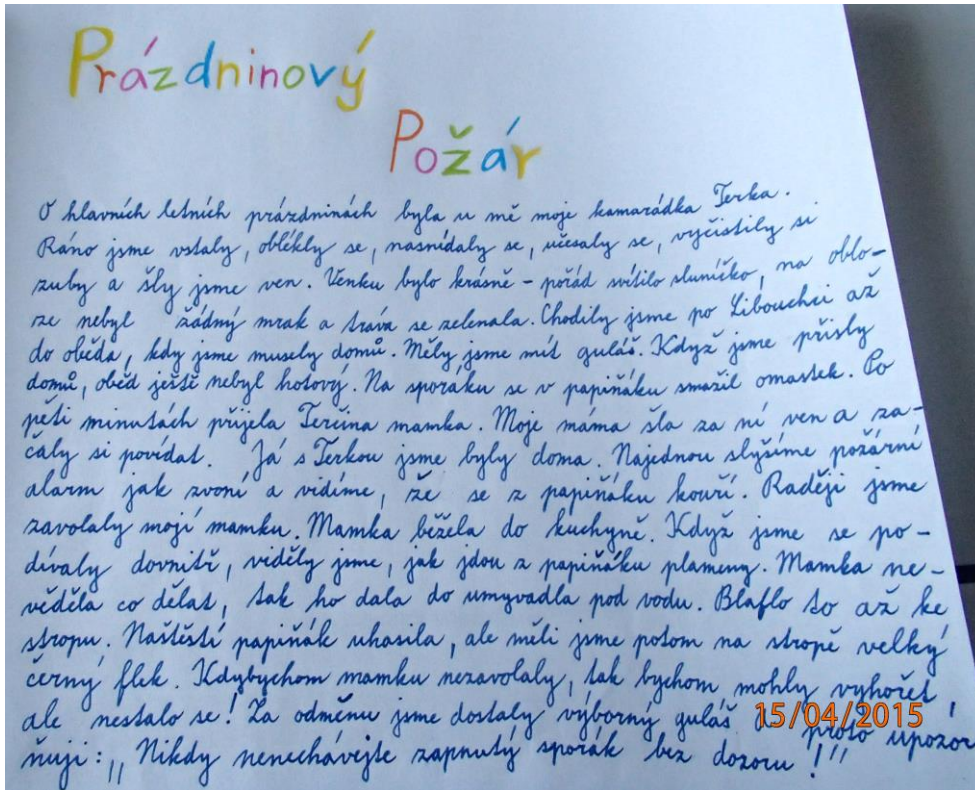 Prázdninový
Požár
O hlavních letních prázdninách byla u mě moje kamarádka Terka.
Ráno jsme vstaly, oblékly se, nasnídaly se, učesaly se, vyčistily si
zuby a šly jsme ven. Venku bylo krásně - pořád svítilo sluníčko, na oblo-
ze nebyl žádný mrak a tráva se zelenala. Chodily jsme po Libouchci až
do oběda, kdy jsme musely domů. Měly jsme mít guláš. Když jsme přišly
domů, oběd ještě nebyl hotový. Na sporáku se v papiňáku smažil omastek. Po
pěti minutách přijela Terčina mamka. Moje máma šla za ní ven a za-
čaly si povídat. Já s Terkou jsme byly doma. Najednou slyšíme požární
alarm jak zvoní a vidíme, že se z papiňáku kouří. Raději jsme
zavolaly mojí mamku. Mamka běžela do kuchyně. Když jsme se po-
dívaly dovnitř, viděly jsme, jak jdou z papiňáku plameny. Mamka ne-
věděla co dělat, tak ho dala do umyvadla pod vodu. Blaflo to až ke
stropu. Naštěstí papiňák uhasila, ale měli jsme potom na stropě velký
černý flek. Kdybychom mamku nezavolaly, tak bychom mohly vyhořet,
ale nestalo se! Za odměnu jsme dostaly výborný guláš a proto upozor
ňuji: ,,Nikdy nenechávejte zapnutý sporák bez dozoru!"
15/04/2015